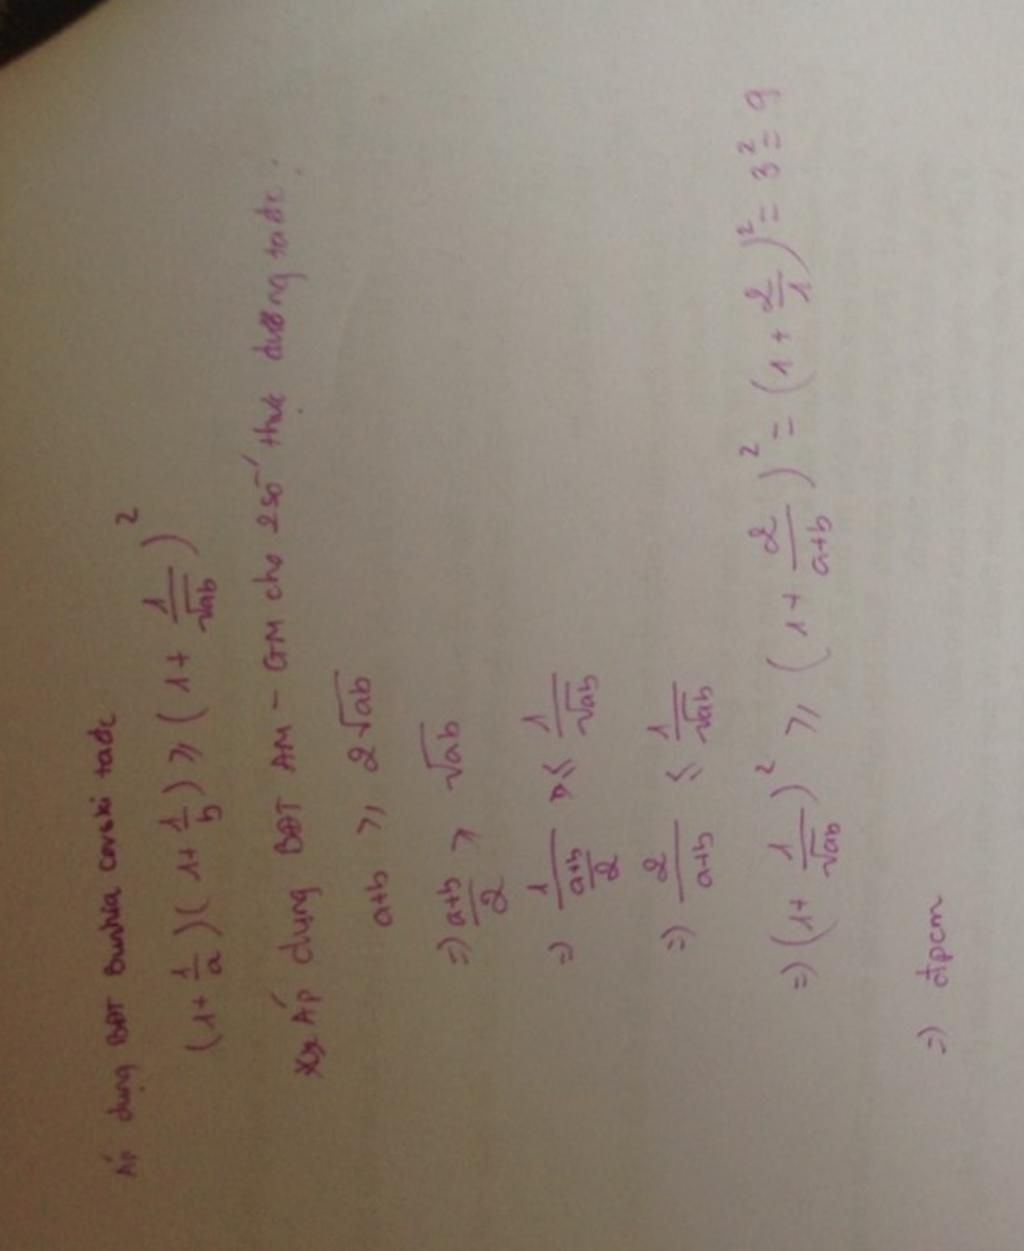 Áp dụng BĐT Bunhia covski ta đc
(1+1/a)(1+1/b) ⩾ (1+1/√ab)²
Áp dụng BĐT AM - GM cho 2 số thực dương ta đc:
a+b ⩾ 2√ab
=) a+b/2 ⩾ √ab
=) 1/(a+b/2) ⩽ 1/√ab
=) 2/a+b ⩽ 1/√ab
=) (1+1/√ab)² ⩾ (1+2/a+b)² = (1+2/1)² = 3² = 9
=) đpcm